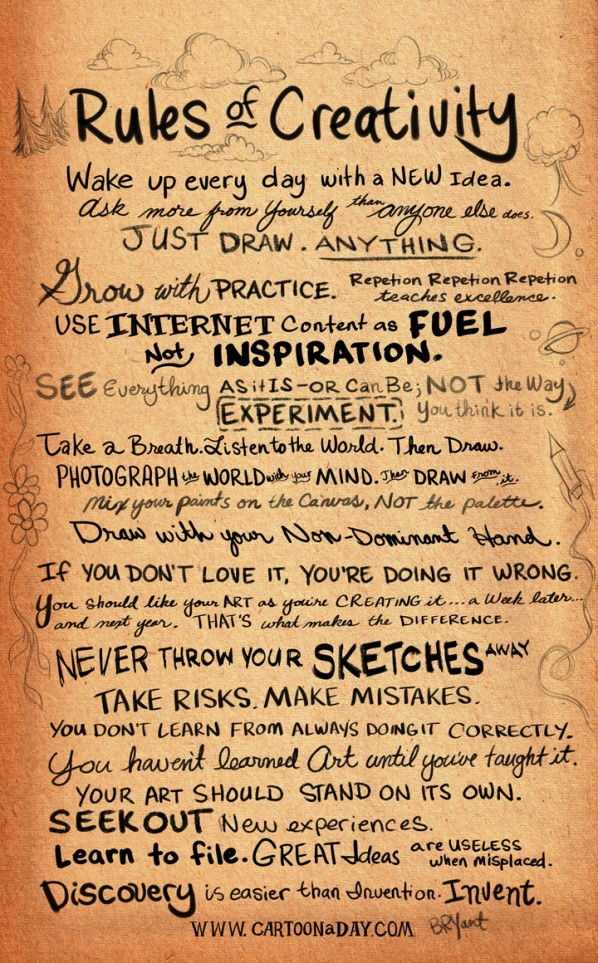 Rules of Creativity
Wake up every day with a NEW Idea.
Ask more from yourself than anyone else does.
JUST DRAW. ANYTHING.
Grow with PRACTICE. Repetion Repetion Repetion
teaches excellence.
USE INTERNET Content as FUEL
Not INSPIRATION.
SEE Everything AS it IS-OR Can Be; NOT the Way
EXPERIMENT. You think it is.
Take a Breath. Listen to the World. Then Draw.
PHOTOGRAPH the WORLD with your MIND. Then DRAW from it.
Mix your paints on the Canvas, NOT the palette.
Draw with your Non-Dominant Hand.
If YOU DON'T LOVE IT, YOU'RE DOING IT WRONG.
You should like your ART as you're CREATING it...a Week later...
and next year. THAT'S what makes the DIFFERENCE.
NEVER THROW YOUR SKETCHES AWAY
TAKE RISKS. MAKE MISTAKES.
YOU DON'T LEARN FROM ALWAYS DOING IT CORRECTLY.
You haven't learned Art until you've taught it.
YOUR ART SHOULD STAND ON ITS OWN.
SEEK OUT New experiences.
Learn to file. GREAT Ideas are USELESS
when misplaced.
Discovery is easier than Invention. Invent.
WWW.CARTOONaDAY.COM BRYant